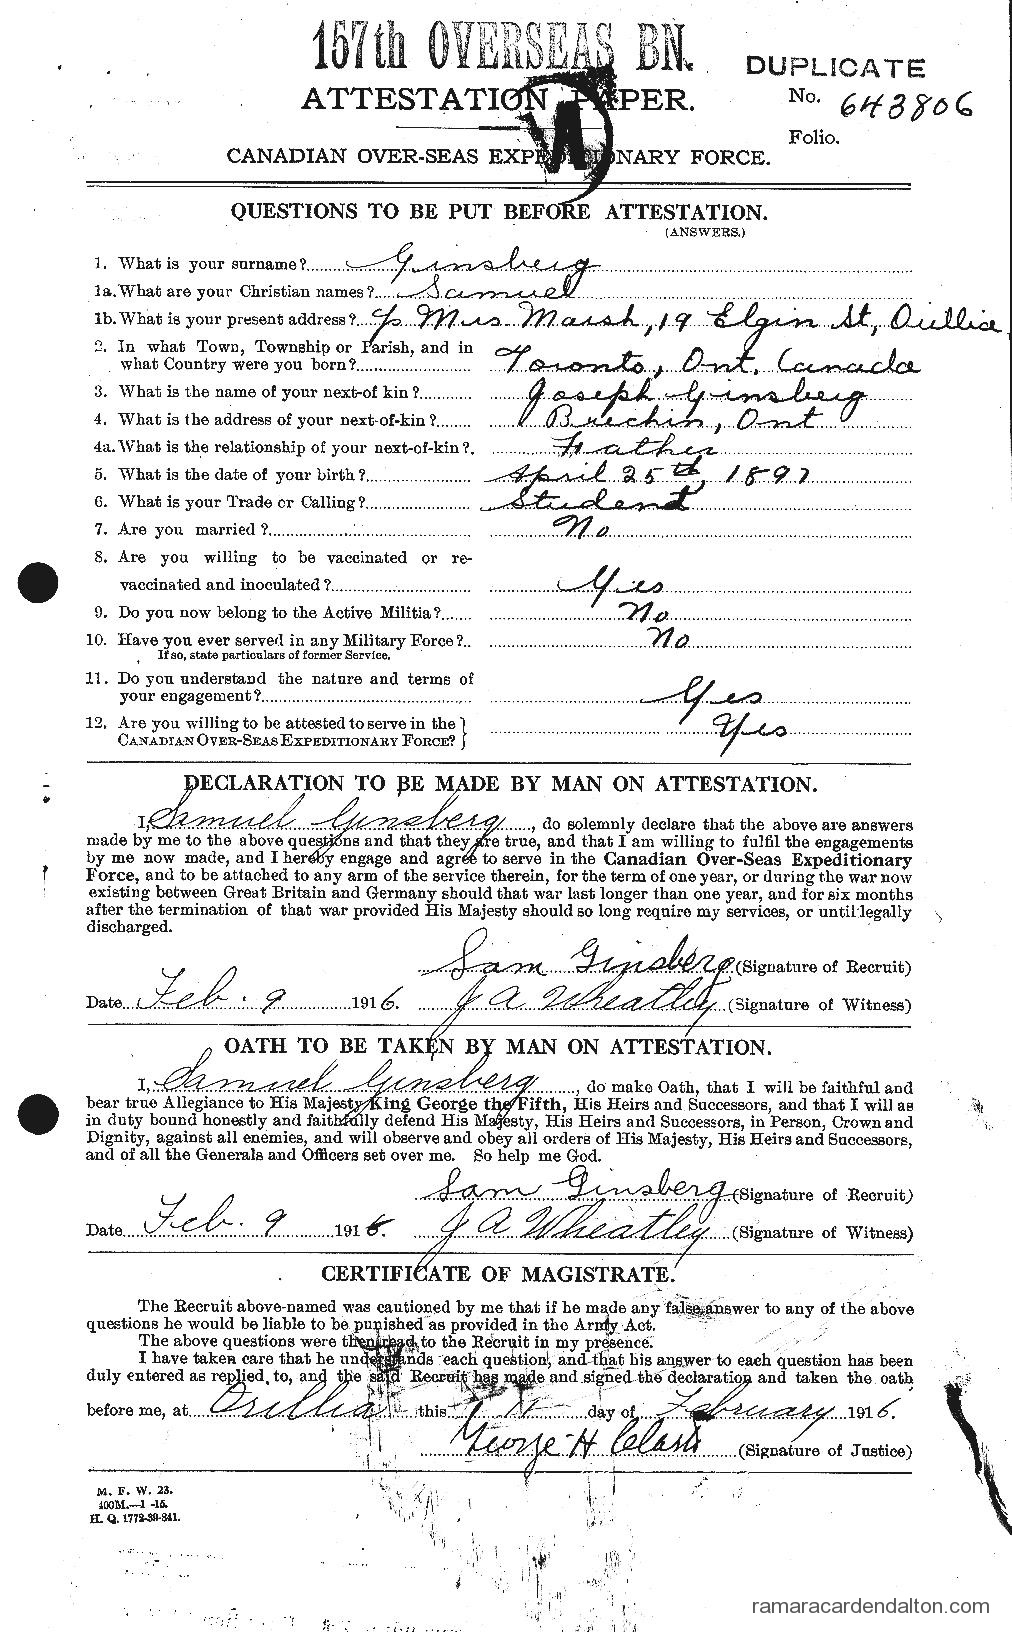 157th OVERSEAS BN.
DUPLICATE
ATTESTATION PAPER.
No. 643806
Folio.
CANADIAN OVER-SEAS EXPEDITIONARY FORCE.
QUESTIONS TO BE PUT BEFORE ATTESTATION.
(ANSWERS.)
1. What is your surname? Ginsberg
1a. What are your Christian names? Samuel
1b. What is your present address? c/o Mrs Marsh, 19 Elgin St, Orillia
2. In what Town, Township or Parish, and in
what Country were you born? Toronto, Ont. Canada
3. What is the name of your next-of kin? Joseph Ginsberg
4. What is the address of your next-of-kin? Brechin, Ont
4a. What is the relationship of your next-of-kin? Father
5. What is the date of your birth? April 25th, 1897
6. What is your Trade or Calling? Student
7. Are you married? No
8. Are you willing to be vaccinated or re-
vaccinated and inoculated? Yes
9. Do you now belong to the Active Militia? No
10. Have you ever served in any Military Force? No
If so, state particulars of former Service.
11. Do you understand the nature and terms of
your engagement? Yes
12. Are you willing to be attested to serve in the
CANADIAN OVER-SEAS EXPEDITIONARY FORCE? } Yes
DECLARATION TO BE MADE BY MAN ON ATTESTATION.
I, Samuel Ginsberg, do solemnly declare that the above are answers
made by me to the above questions and that they are true, and that I am willing to fulfil the engagements
by me now made, and I hereby engage and agree to serve in the Canadian Over-Seas Expeditionary
Force, and to be attached to any arm of the service therein, for the term of one year, or during the war now
existing between Great Britain and Germany should that war last longer than one year, and for six months
after the termination of that war provided His Majesty should so long require my services, or until legally
discharged.
Sam Ginsberg (Signature of Recruit)
Date Feb. 9 1916. J A Wheatley (Signature of Witness)
OATH TO BE TAKEN BY MAN ON ATTESTATION.
I, Samuel Ginsberg, do make Oath, that I will be faithful and
bear true Allegiance to His Majesty King George the Fifth, His Heirs and Successors, and that I will as
in duty bound honestly and faithfully defend His Majesty, His Heirs and Successors, in Person, Crown and
Dignity, against all enemies, and will observe and obey all orders of His Majesty, His Heirs and Successors,
and of all the Generals and Officers set over me. So help me God.
Sam Ginsberg (Signature of Recruit)
Date Feb. 9 1916. J A Wheatley (Signature of Witness)
CERTIFICATE OF MAGISTRATE.
The Recruit above-named was cautioned by me that if he made any false answer to any of the above
questions he would be liable to be punished as provided in the Army Act.
The above questions were then read to the Recruit in my presence.
I have taken care that he understands each question, and that his answer to each question has been
duly entered as replied to, and the said Recruit has made and signed the declaration and taken the oath
before me, at Orillia this day of February 1916.
George H Clark (Signature of Justice)
M. F. W. 23.
400M.—1-15.
H. Q. 1772-39-841.
ramaracardendalton.com